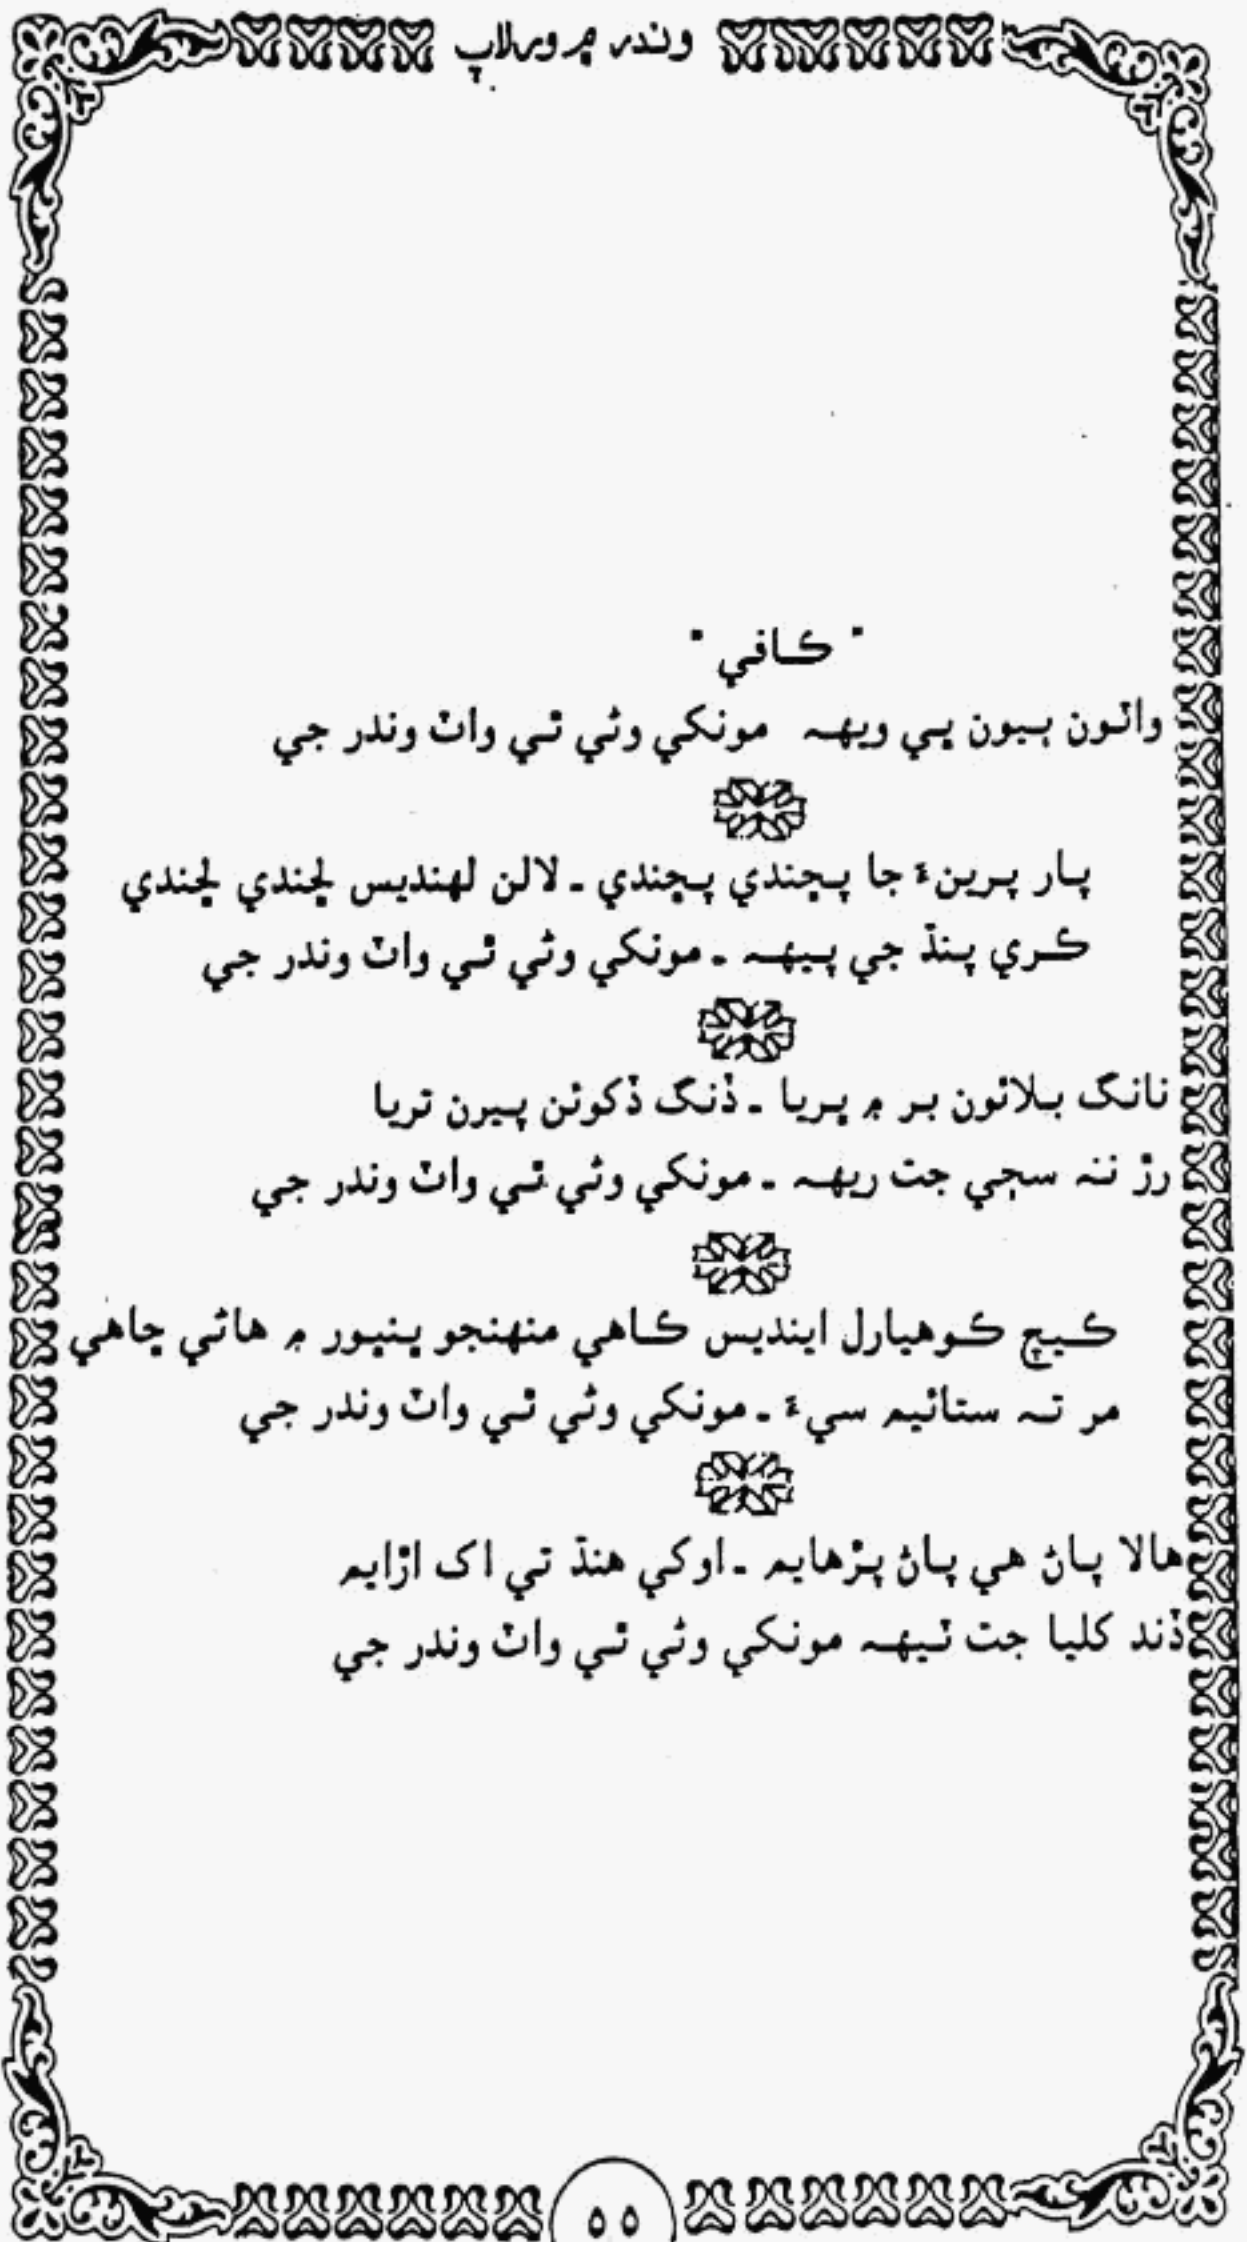 وندر ۾ ورلاپ
" ڪافي "
واٽون ٻيون ڀي ويهہ مونکي وڻي ٿي واٽ وندر جي
پار پرينءَ جا پڇندي پڇندي ـ لالن لهنديس لڇندي لڇندي
ڪري پنڌ جي پيهہ ـ مونکي وڻي ٿي واٽ وندر جي
نانگ بلائون بر ۾ ڀريا ـ ڏنگ ڏکوئن پيرن تريا
رڙ ننہ سڄي جت ريهہ ـ مونکي وڻي ٿي واٽ وندر جي
ڪيچ ڪوهيارل اينديس ڪاهي منهنجو ڀنڀور ۾ هاڻي ڇاهي
مر تہ ستائيم سيءَ ـ مونکي وڻي ٿي واٽ وندر جي
هالا پاڻ هي پاڻ پڙهايم ـ اوکي هنڌ تي اک اڙايم
ڏند ڪليا جت ٽيهہ مونکي وڻي ٿي واٽ وندر جي
٥٥